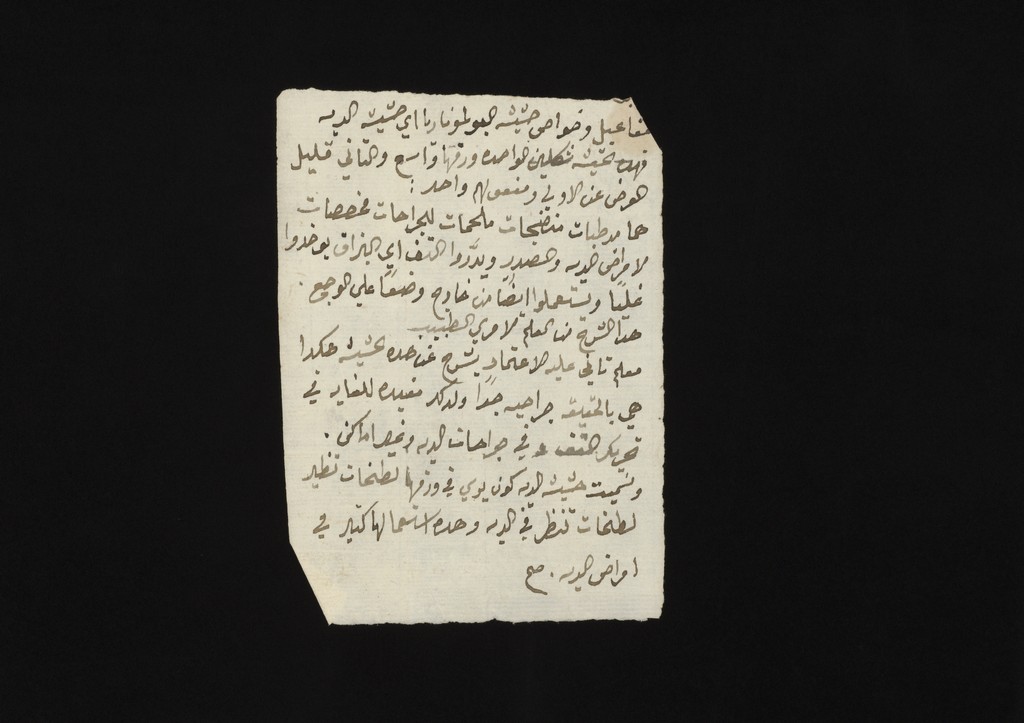 مفاعيل وخواص حشيشة البولموناريا اي حشيشة الريه
فهده الحشيشه شكلين الواحده ورقها واسع والتاني قليل
العرض عن الاولي ومفعولهم واحد :
هما مرطبات منضجات ملحمات للجراحات مخصصات
لامراض الريه والصدر ويدرّوا التف اي البزاق يوخدوا
غليًا ويستعملوا ايضًا من خارج وضعًا علي الوجع .
هدا الشرح من المعلم لامري الطبيب
معلم تاني عليه الاعتماد يشرح عن هده الحشيشه هكدا
هي بالحقيقه جراحيه جدًا ولدلك مفيده للغايه في
تحريك التف و في جراحات الريه وغير اماكن .
وسُميت حشيشة الريه كون يوي في ورقها لطخات نظير
لطخات تنظر في الريه وهده استعمالها كتير في
امراض الريه . صح